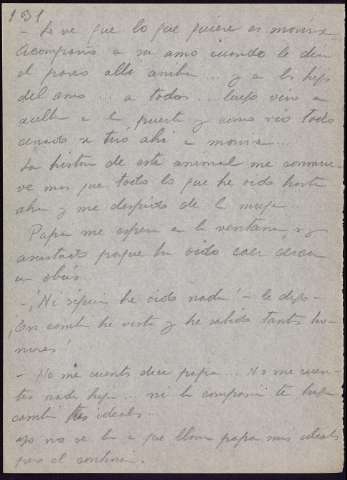 131
- Se ve que lo que quiere es morirse
Acompañó a su amo cuando le dieron
el paseo allá arriba ... y a la hija
del amo ... a todos ... luego vino a
aullar a la puerta y como vio todo
cerrado se tiró ahí a morirse ...
La historia de este animal me conmue-
ve mas que todo lo que he oido hasta
ahora y me despido de la mujer.
Papá me espera en la ventana, muy
asustado porque ha oido caer cerca
un obús.
- ¡Ni siquiera he oido nada! - le digo -
¡En cambio he visto y he sabido tantos ho-
rrores!
- No me cuentes dice papá ... No me cuen-
tes nada hija ... ni la compasión te hace
cambiar tus ideales.
Yo no sé a que llama papá mis ideales
pero él continua.